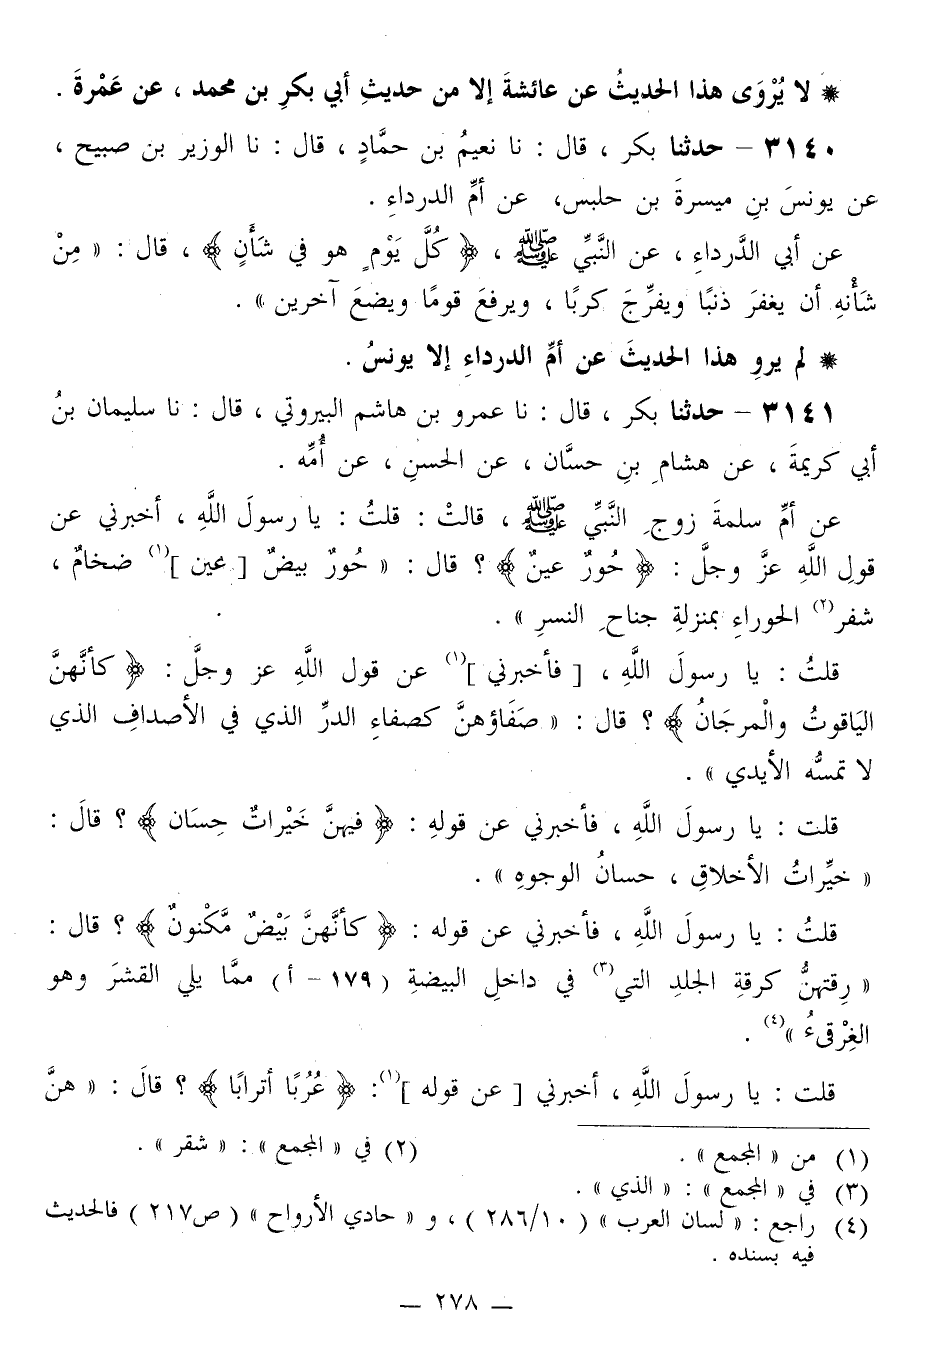 * لا يُرْوَى هذا الحديثُ عن عائشةَ إلا من حديثِ أبي بكرِ بن محمد ، عن عَمْرةَ .
٣١٤٠ – حدثنا بكر ، قال : نا نعيمُ بن حمَّادٍ ، قال : نا الوزير بن صبيح ،
عن يونسَ بنِ ميسرةَ بن حلبس، عن أمِّ الدرداءِ .
عن أبي الدَّرداءِ ، عن النَّبيِّ ﷺ ، ﴿ كُلَّ يَوْمٍ هو في شَأْنٍ ﴾ ، قال : « مِنْ
شَأْنهِ أن يغفرَ ذنبًا ويفرِّجَ كربًا ، ويرفعَ قومًا ويضعَ آخرين » .
* لم يروِ هذا الحديثَ عن أمِّ الدرداءِ إلا يونسُ .
٣١٤١ – حدثنا بكر ، قال : نا عمرو بن هاشم البيروتي ، قال : نا سليمان بنُ
أبي كريمةَ ، عن هشامِ بنِ حسَّان ، عن الحسنِ ، عن أُمِّه .
عن أمِّ سلمةَ زوجِ النَّبيِّ ﷺ ، قالتْ : قلتُ : يا رسولَ اللَّهِ ، أخبرني عن
قولِ اللَّهِ عزَّ وجلَّ : ﴿ حُورٌ عينٌ ﴾ ؟ قال : « حُورٌ بيضٌ [ عين ](١) ضخامٌ ،
شفر(٢) الحوراءِ بمنزلةِ جناحِ النسرِ » .
قلتُ : يا رسولَ اللَّهِ ، [ فأخبرني ](١) عن قول اللَّهِ عز وجلَّ : ﴿ كأنَّهنَّ
اليَاقوتُ والْمرجَانُ ﴾ ؟ قال : « صَفَاؤهنَّ كصفاءِ الدرِّ الذي في الأصدافِ الذي
لا تمسُّه الأيدي » .
قلت : يا رسولَ اللَّهِ ، فأخبرني عن قولهِ : ﴿ فيهنَّ خَيْراتٌ حِسَان ﴾ ؟ قالَ :
« خيِّراتُ الأخلاقِ ، حسانُ الوجوهِ » .
قلتُ : يا رسولَ اللَّهِ ، فأخبرني عن قوله : ﴿ كأنَّهنَّ بَيْضٌ مَّكْنونٌ ﴾ ؟ قال :
« رِقتهنُّ كرقةِ الجلدِ التي(٣) في داخلِ البيضةِ ( ١٧٩ – أ ) ممَّا يلي القشرَ وهو
الغِرْقىءُ »(٤) .
قلت : يا رسولَ اللَّهِ ، أخبرني [ عن قوله ](١): ﴿ عُرُبًا أترابًا ﴾ ؟ قالَ : « هنَّ
(١) من « المجمع » . (٢) في « المجمع » : « شقر » .
(٣) في « المجمع » : « الذي » .
(٤) راجع : « لسان العرب » ( ٢٨٦/١٠ ) ، و « حادي الأرواح » ( ص٢١٧ ) فالحديث
فيه بسنده .
– ٢٧٨ –